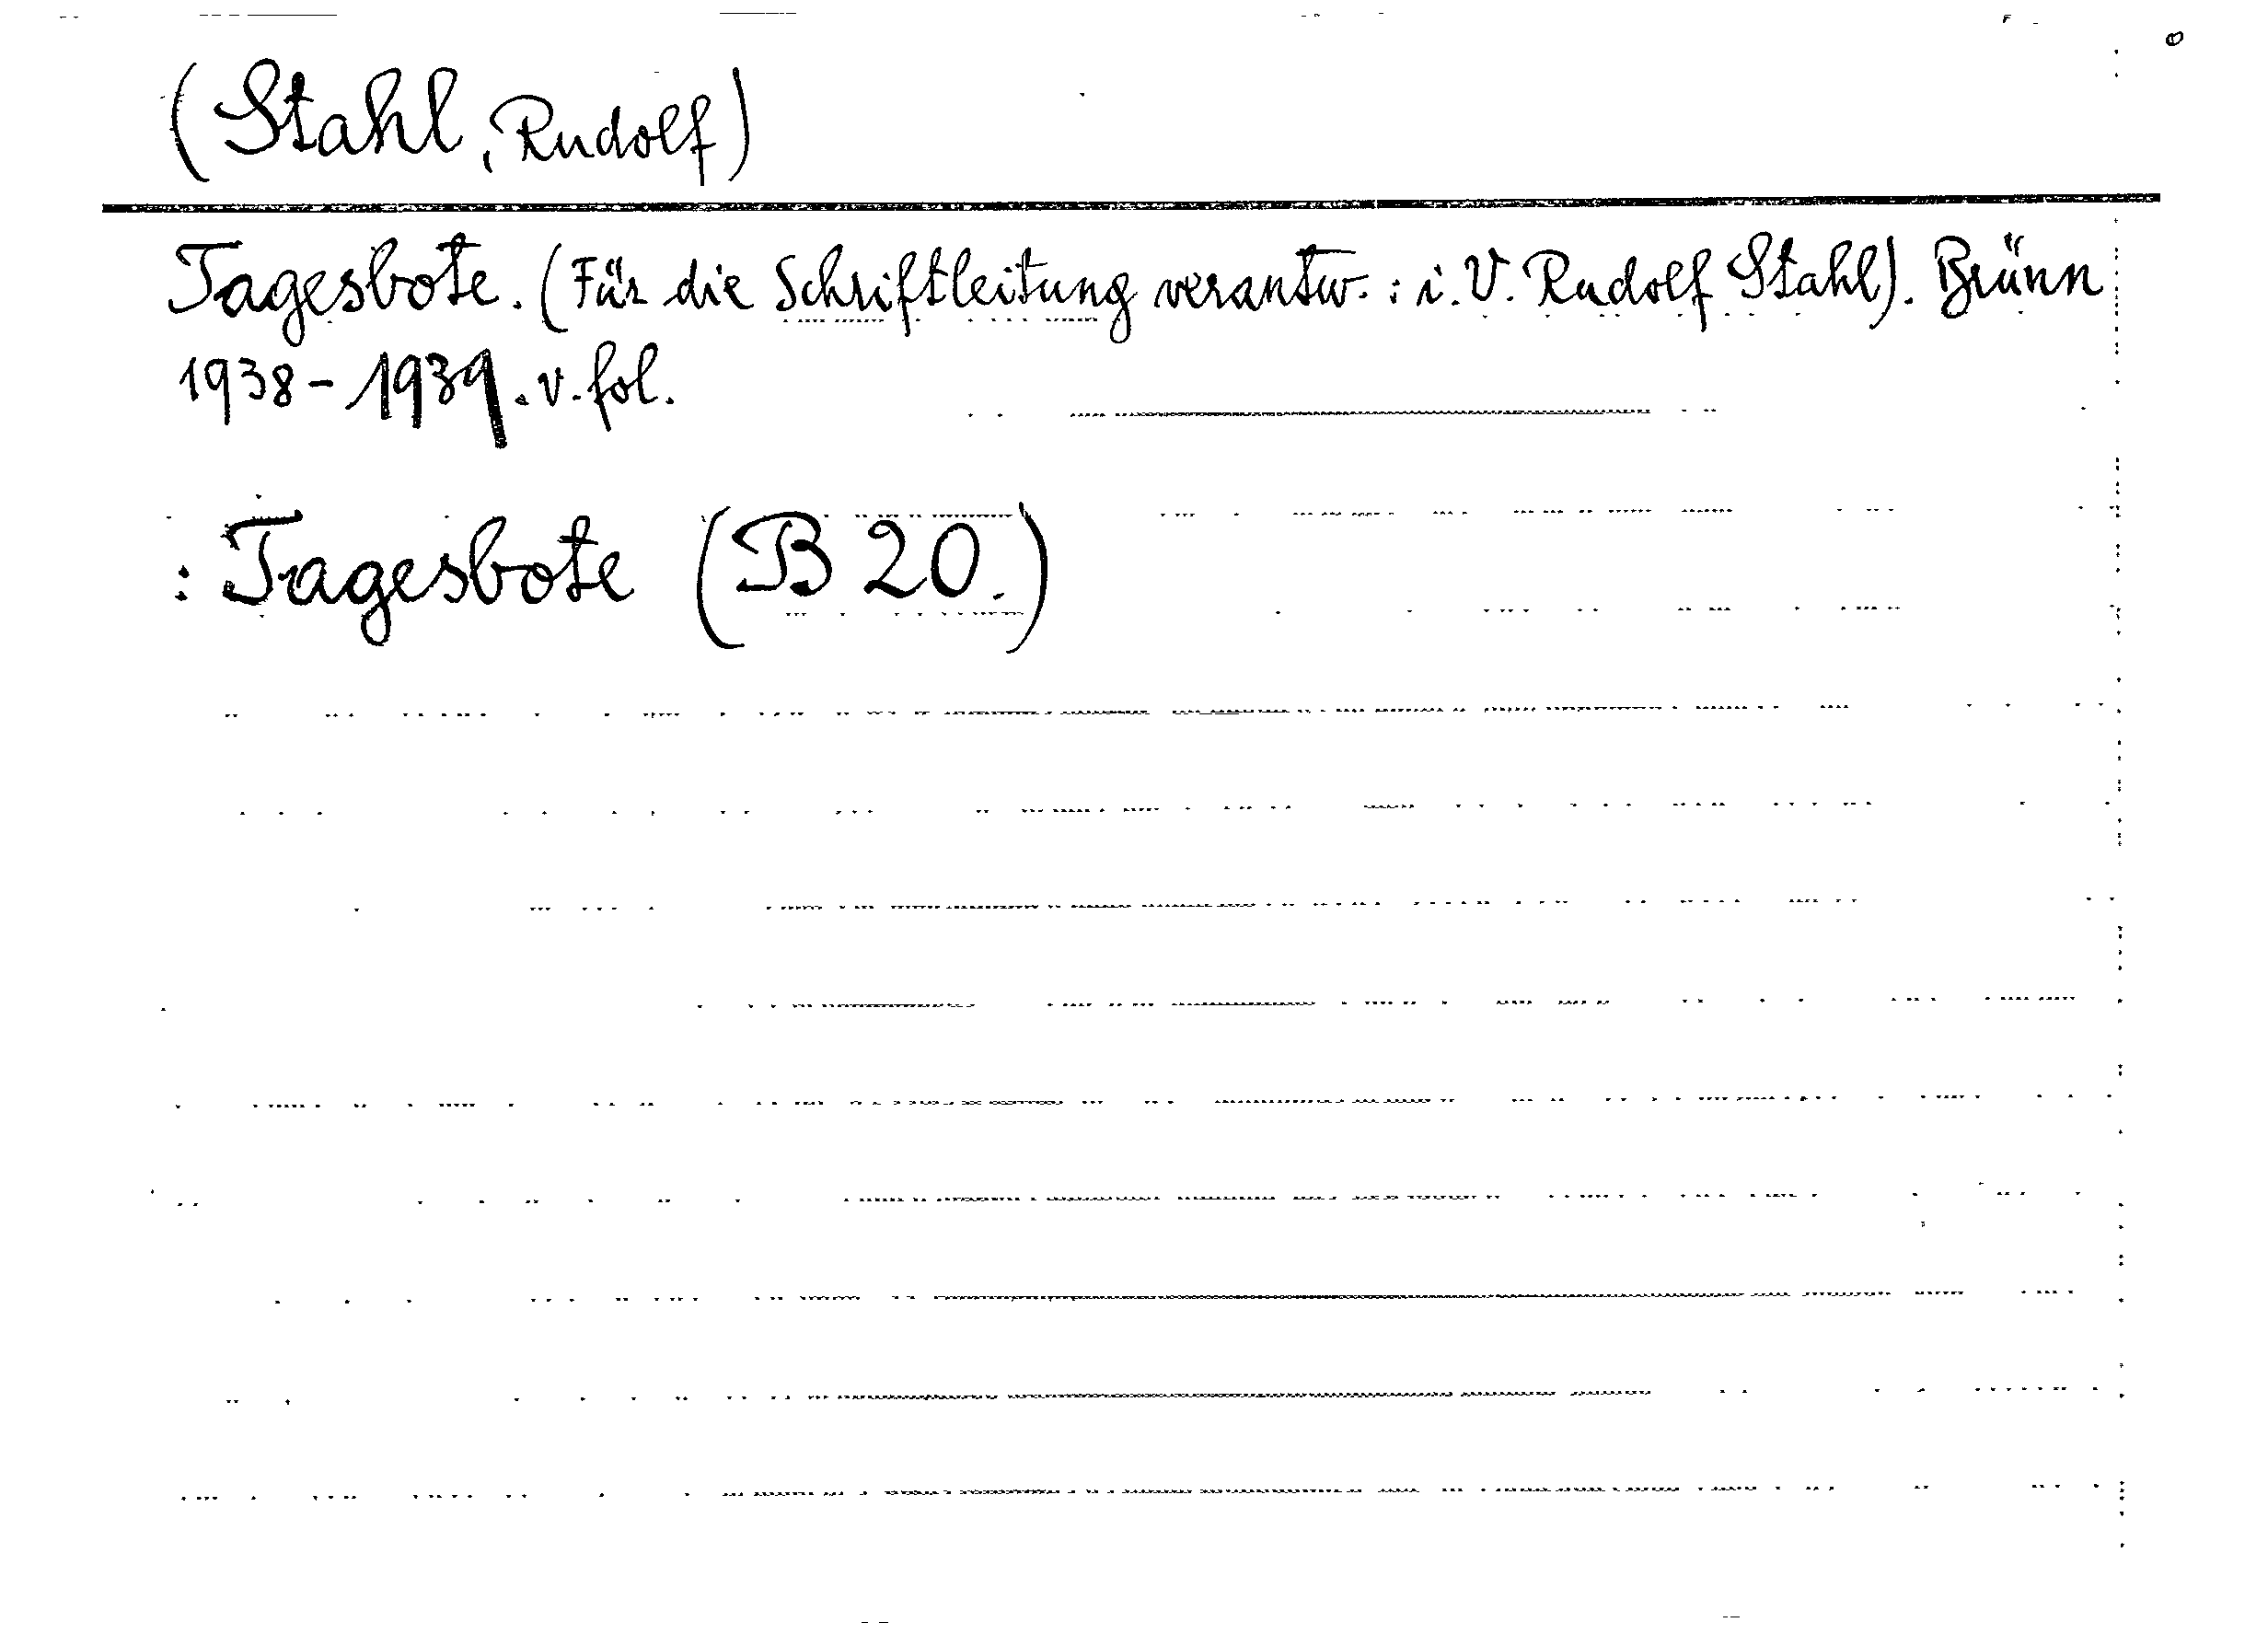 (Stahl, Rudolf)
Tagesbote. (Für die Schriftleitung verantw. : i. V. Rudolf Stahl). Brünn
1938 - 1939. v. fol.
: Tagesbote (B 20.)